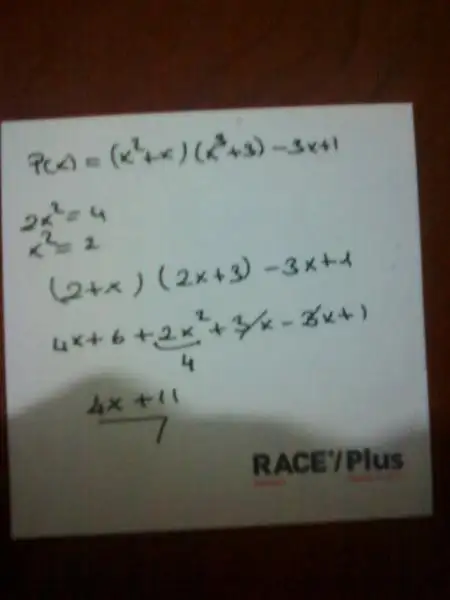 P(x) = (x²+x)(x³+3)-3x+1
2x² = 4
x² = 2
(2+x) (2x+3) -3x+1
4x+6+2x²+3x-3x+1
4
4x+11
RACE'/Plus